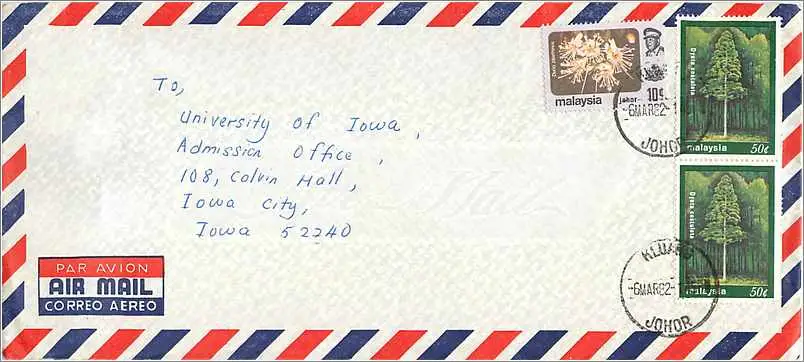 To,
University of Iowa,
Admission Office,
108, Calvin Hall,
Iowa City,
Iowa 52240
PAR AVION
AIR MAIL
CORREO AEREO
malaysia
johor
10¢
malaysia 50¢
malaysia 50¢
6MAR82
JOHOR
KLUANG
6MAR82
JOHOR